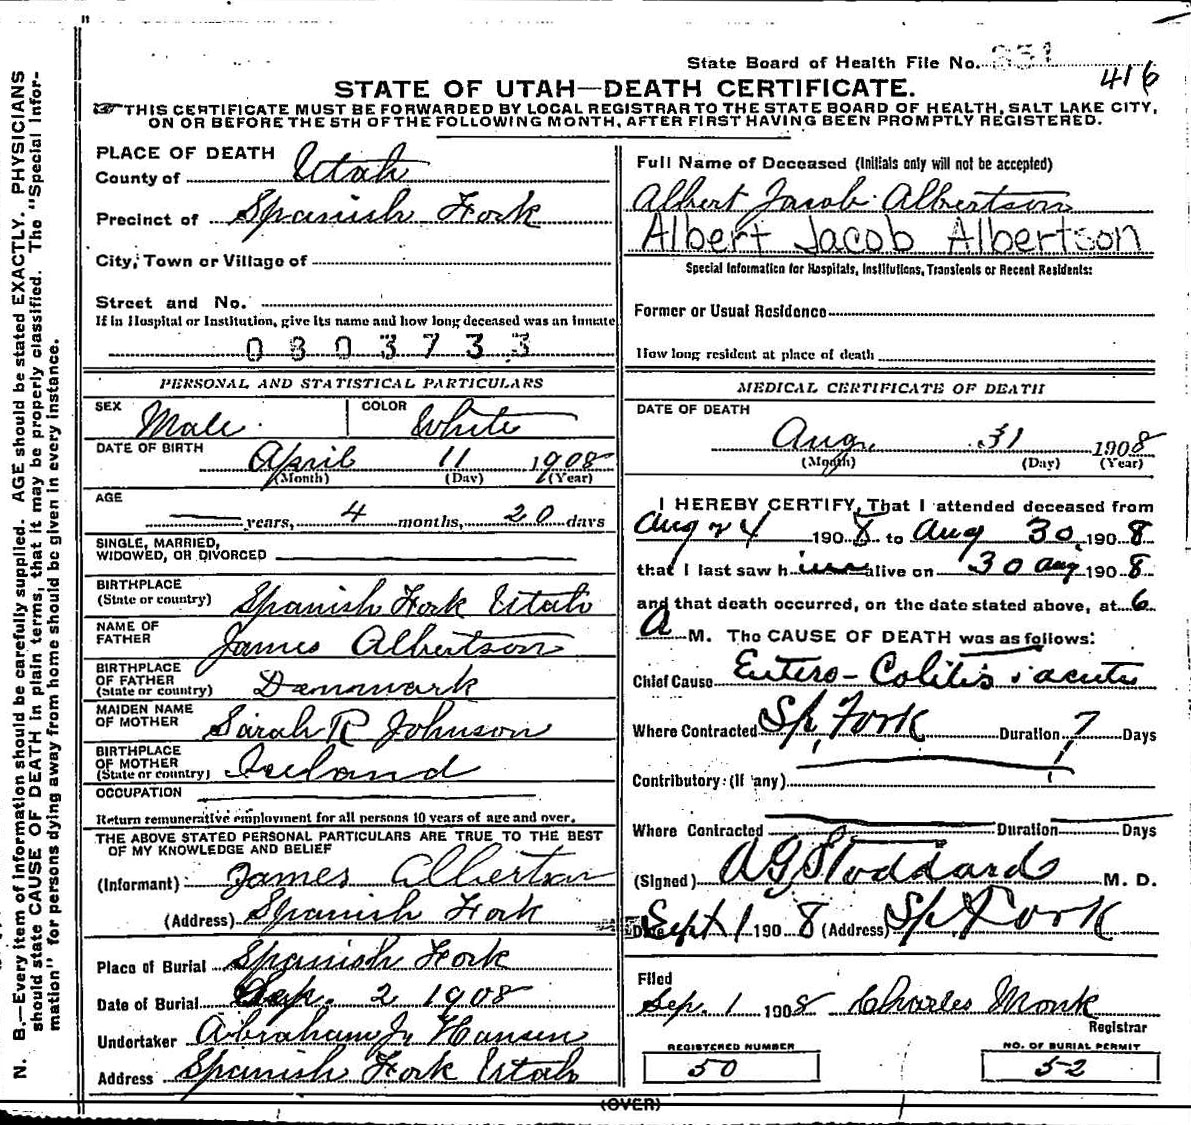 State Board of Health File No. 351
416
STATE OF UTAH—DEATH CERTIFICATE.
THIS CERTIFICATE MUST BE FORWARDED BY LOCAL REGISTRAR TO THE STATE BOARD OF HEALTH, SALT LAKE CITY,
ON OR BEFORE THE 5TH OF THE FOLLOWING MONTH, AFTER FIRST HAVING BEEN PROMPTLY REGISTERED.
N. B.—Every item of information should be carefully supplied. AGE should be stated EXACTLY. PHYSICIANS
should state CAUSE OF DEATH in plain terms, that it may be properly classified. The "Special Infor-
mation" for persons dying away from home should be given in every instance.
PLACE OF DEATH
County of Utah
Precinct of Spanish Fork
City, Town or Village of
Street and No.
If in Hospital or Institution, give its name and how long deceased was an inmate
0803733
PERSONAL AND STATISTICAL PARTICULARS
SEX Male COLOR White
DATE OF BIRTH April 11 1908
(Month) (Day) (Year)
AGE
years, 4 months, 20 days
SINGLE, MARRIED,
WIDOWED, OR DIVORCED
BIRTHPLACE
(State or country) Spanish Fork Utah
NAME OF
FATHER James Albertson
BIRTHPLACE
OF FATHER
(State or country) Denmark
MAIDEN NAME
OF MOTHER Sarah R Johnson
BIRTHPLACE
OF MOTHER
(State or country) Iceland
OCCUPATION
Return remunerative employment for all persons 10 years of age and over.
THE ABOVE STATED PERSONAL PARTICULARS ARE TRUE TO THE BEST
OF MY KNOWLEDGE AND BELIEF
(Informant) James Albertson
(Address) Spanish Fork
Place of Burial Spanish Fork
Date of Burial Sep. 2 1908
Undertaker Abraham Jr Hansen
Address Spanish Fork Utah
Full Name of Deceased (Initials only will not be accepted)
Albert Jacob Albertson
Albert Jacob Albertson
Special Information for Hospitals, Institutions, Transients or Recent Residents:
Former or Usual Residence
How long resident at place of death
MEDICAL CERTIFICATE OF DEATH
DATE OF DEATH
Aug. 31 1908
(Month) (Day) (Year)
I HEREBY CERTIFY, That I attended deceased from
Aug 24 1908 to Aug 30, 1908
that I last saw him alive on 30 Aug 1908
and that death occurred, on the date stated above, at 6
A M. The CAUSE OF DEATH was as follows:
Chief Cause Entero-Colitis acute
Where Contracted Sp. Fork Duration 7 Days
Contributory: (If any)
Where Contracted Duration Days
(Signed) A G Stoddard M. D.
Date Sept 1 1908 (Address) Sp. Fork
Filed
Sep. 1 1908 Charles Monk
Registrar
REGISTERED NUMBER
50
NO. OF BURIAL PERMIT
52
(OVER)